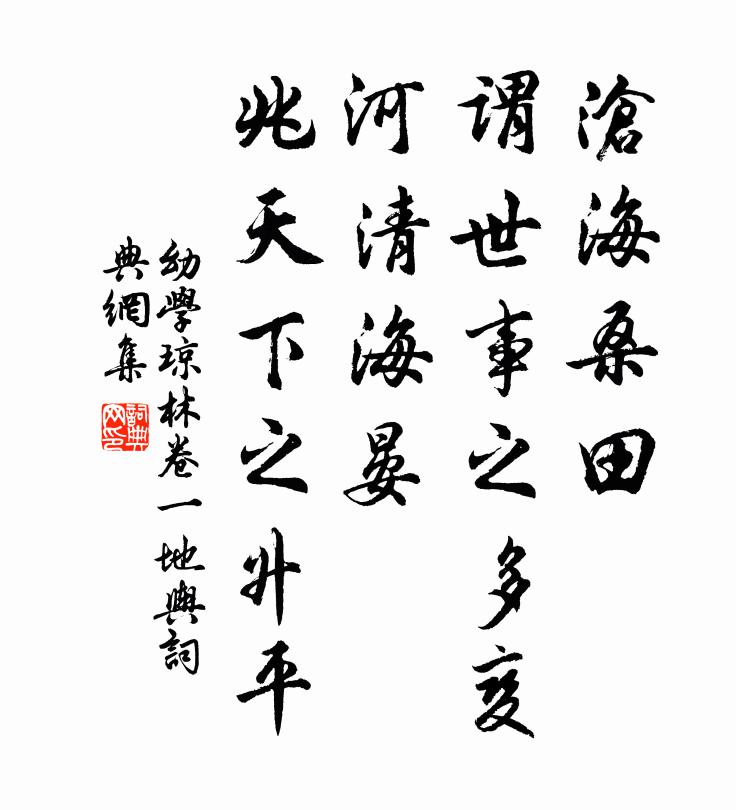 滄海桑田
謂世事之多变
河清海晏
兆天下之升平
幼學琼林卷一地輿詞
典網集
詞典
网印